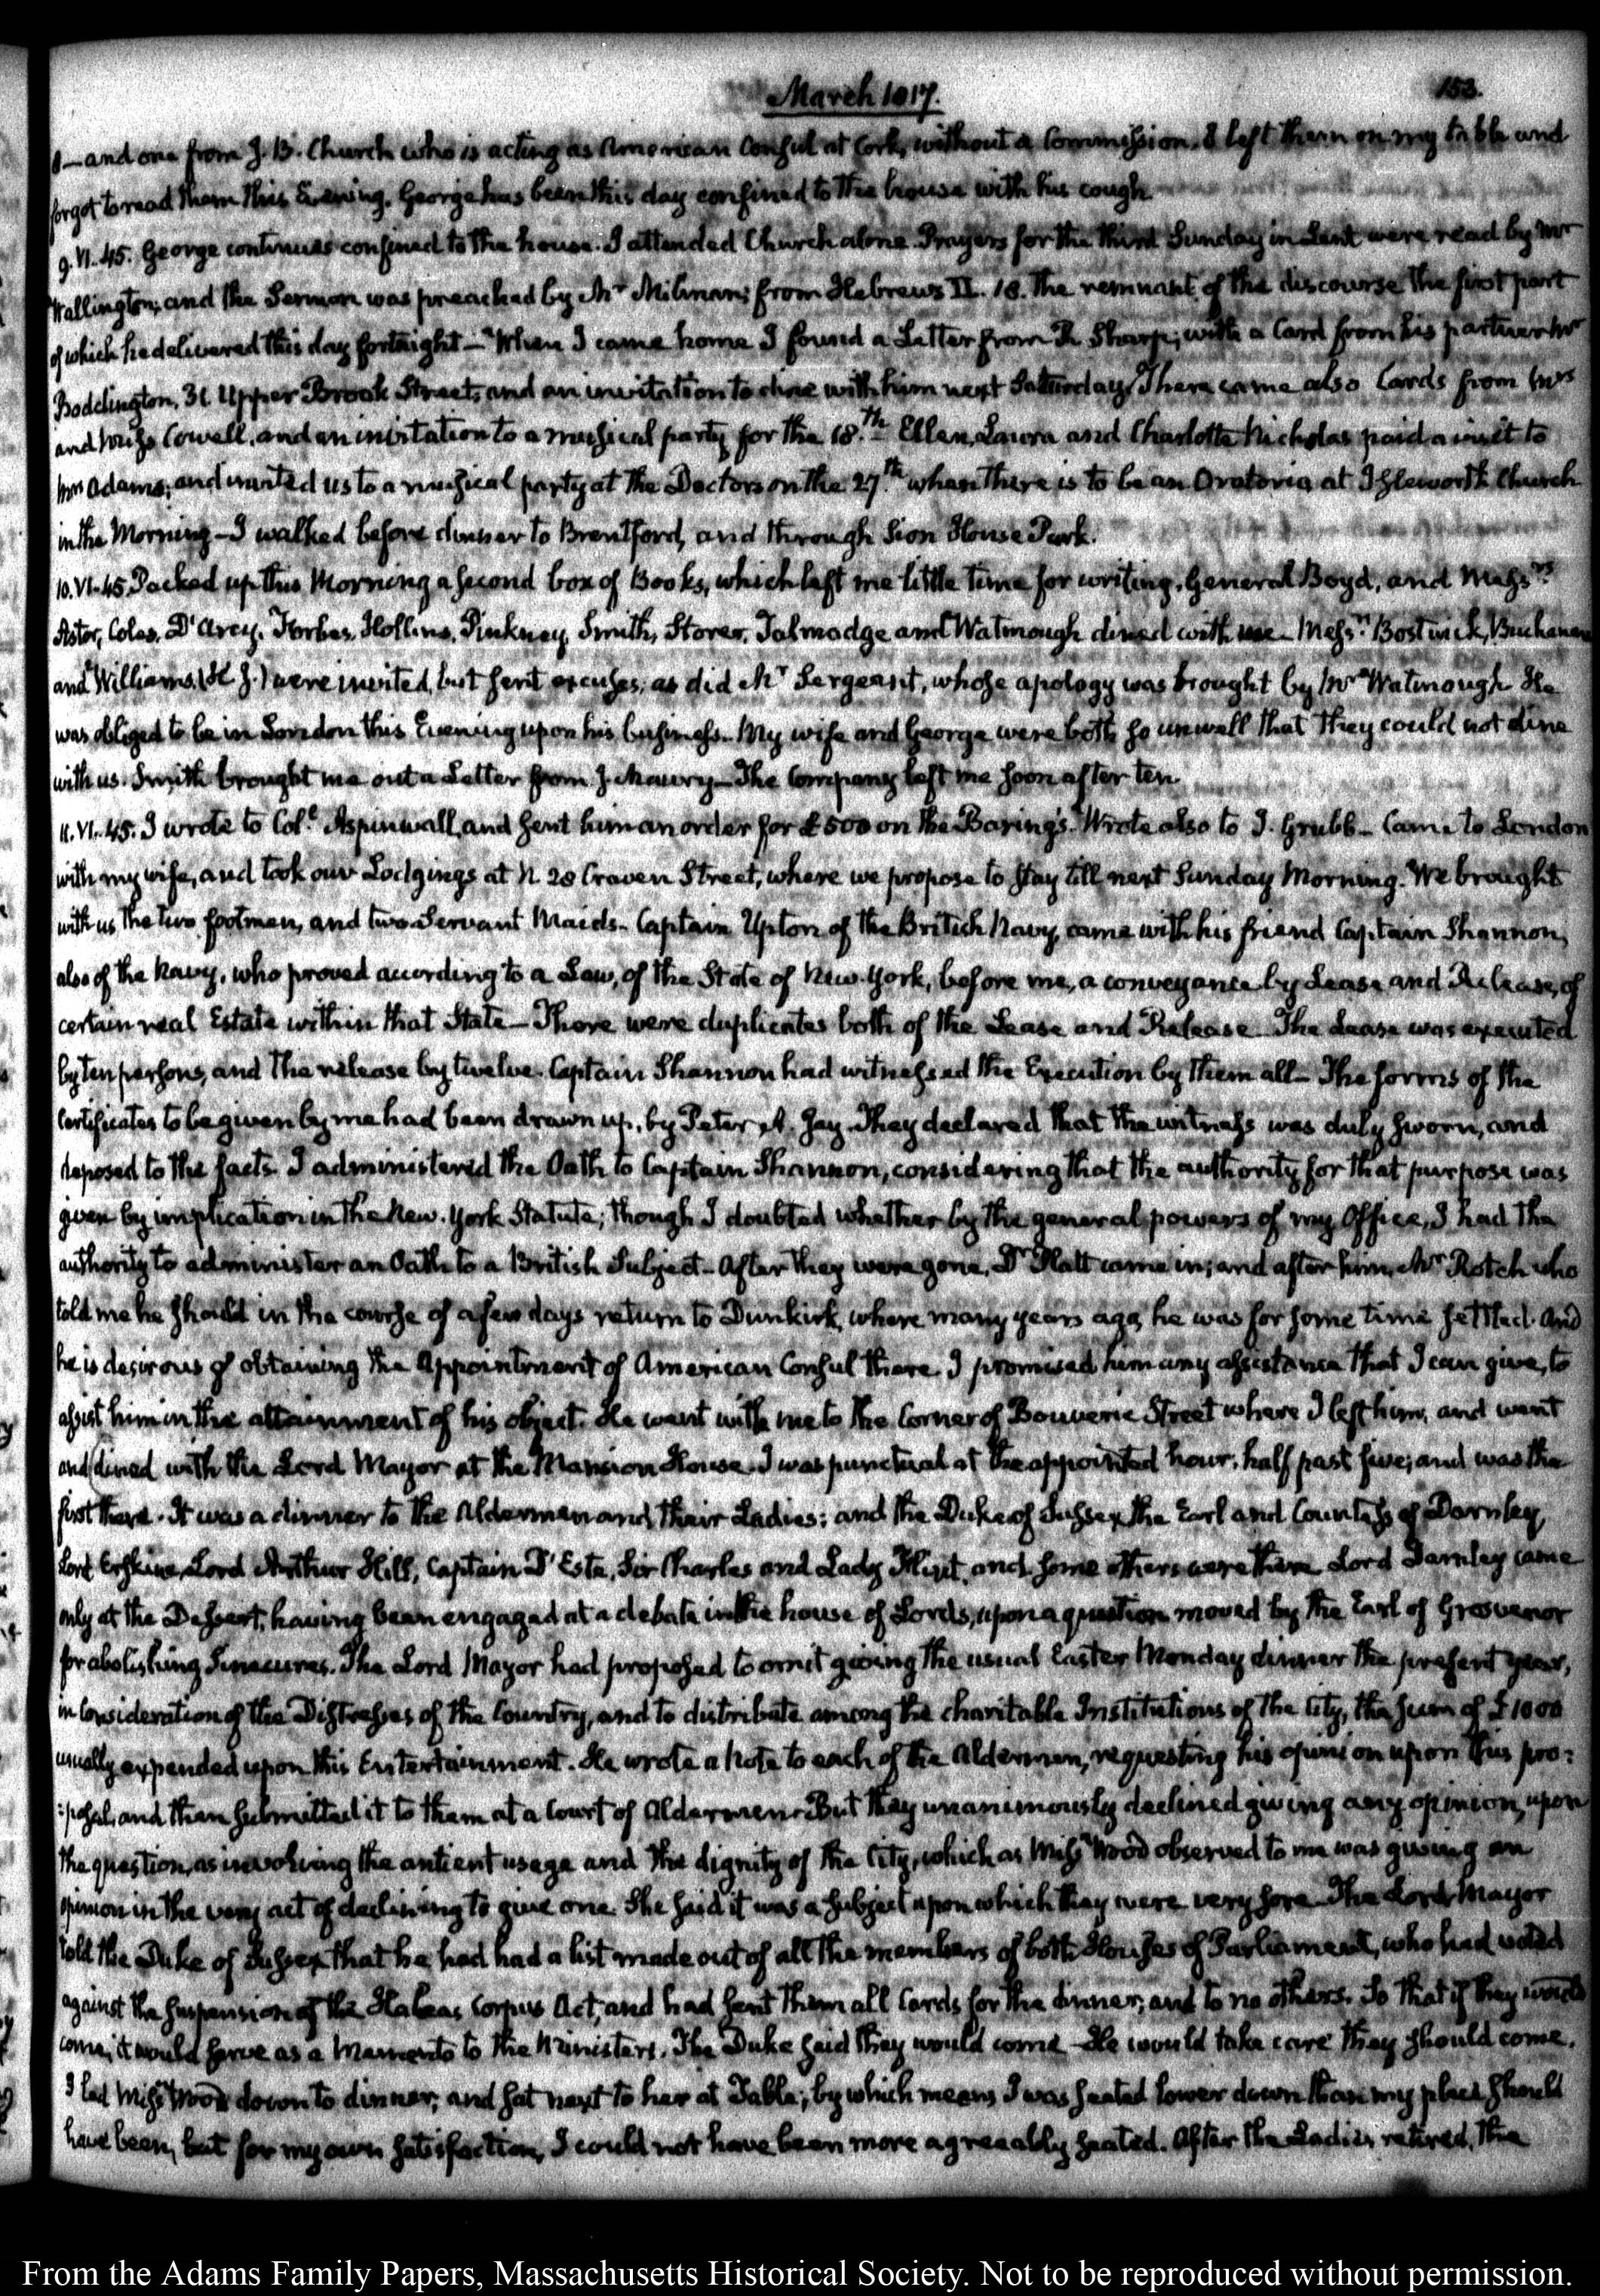 March 1817.
153.
8— and one from J. B. Church who is acting as American Consul at Cork, without a Commission. I left them on my table and
forgot to read them this Evening. George has been this day confined to the house with his cough
9. VI. 45. George continues confined to the house. I attended Church alone. Prayers for the third Sunday in Lent were read by Mr
Wallington; and the Sermon was preached by Mr Milman; from Hebrews II. 18. the remnant of the discourse the first part
of which he delivered this day fortnight— When I came home I found a Letter from R Sharp; with a Card from his partner Mr
Boddington, 31 Upper Brook Street, and an invitation to dine with him next Saturday. There came also Cards from Mrs
and Miss Cowell, and an invitation to a musical party for the 18.th Ellen, Laura and Charlotte Nicholas paid a visit to
Mrs Adams; and invited us to a musical party at the Doctors on the 27.th when there is to be an Oratorio at Isleworth Church
in the Morning— I walked before dinner to Brentford, and through Sion House Park.
10. VI. 45. Packed up this Morning a second box of Books, which left me little time for writing. General Boyd, and Messrs
Astor, Coles, D'Arcy, Forbes, Hollins, Pinkney, Smith, Storer, Talmadge and Watmough dined with me— Messrs Bostwick, Buchanan
and Williams. (H J.) were invited, but sent excuses; as did Mr Sergeant, whose apology was brought by Mr Watmough He
was obliged to be in London this Evening upon his business. My wife and George were both so unwell that they could not dine
with us. Smith brought me out a Letter from J. Maury— The Company left me soon after ten.
11. VI. 45. I wrote to Coll Aspinwall, and sent him an order for £500 on the Baring's. Wrote also to J. Grubb— Came to London
with my wife, and took our Lodgings at N. 28 Craven Street, where we propose to stay till next Sunday Morning. We brought
with us the two footmen, and two Servant Maids— Captain Upton of the British Navy, came with his friend Captain Shannon,
also of the Navy, who proved according to a Law, of the State of New-York, before me, a conveyance by Lease and Release, of
certain real Estate within that State— There were duplicates both of the Lease and Release— The Lease was executed
by ten persons, and the release by twelve. Captain Shannon had witnessed the Execution by them all— The forms of the
Certificates to be given by me had been drawn up, by Peter A. Jay. They declared that the witness was duly sworn, and
deposed to the facts. I administered the Oath to Captain Shannon, considering that the authority for that purpose was
given by implication in the New-York Statute; though I doubted whether by the general powers of my Office, I had the
authority to administer an Oath to a British Subject— After they were gone, Dr Hall came in; and after him, Mr Rotch who
told me he should in the course of a few days return to Dunkirk, where many years ago, he was for some time settled. And
he is desirous of obtaining the Appointment of American Consul there. I promised him any assistance that I can give, to
assist him in the attainment of his object. He went with me to the Corner of Bouverie Street where I left him, and went
and dined with the Lord Mayor at the Mansion House. I was punctual at the appointed hour; half past five; and was the
first there. It was a dinner to the Aldermen and their Ladies; and the Duke of Sussex, the Earl and Countess of Darnley,
Lord Erskine, Lord Arthur Hill, Captain D'Este, Sir Charles and Lady Flint, and some others were there Lord Darnley came
only at the Dessert, having been engaged at a debate in the house of Lords, upon a question moved by the Earl of Grosvenor
for abolishing Sinecures. The Lord Mayor had proposed to omit giving the usual Easter Monday dinner the present year,
in consideration of the Distresses of the Country, and to distribute among the charitable Institutions of the City, the sum of £1000
usually expended upon this Entertainment. He wrote a Note to each of the Aldermen, requesting his opinion upon this pro:
:posal, and then submitted it to them at a Court of Aldermen. But they unanimously declined giving any opinion, upon
the question, as involving the antient usage and the dignity of the City, which as Miss Wood observed to me was giving an
opinion in the very act of declining to give one. She said it was a subject upon which they were very sore. The Lord Mayor
told the Duke of Sussex that he had had a list made out of all the members of both Houses of Parliament, who had voted
against the suspension of the Habeas Corpus Act, and had sent them all Cards for the dinner; and to no others. So that if they would
come, it would serve as a Memento to the Ministers. The Duke said they would come— He would take care they should come.
I led Miss Wood down to dinner, and sat next to her at Table; by which means I was seated lower down than my place should
have been, but for my own satisfaction, I could not have been more agreeably seated. After the Ladies retired, the
From the Adams Family Papers, Massachusetts Historical Society. Not to be reproduced without permission.